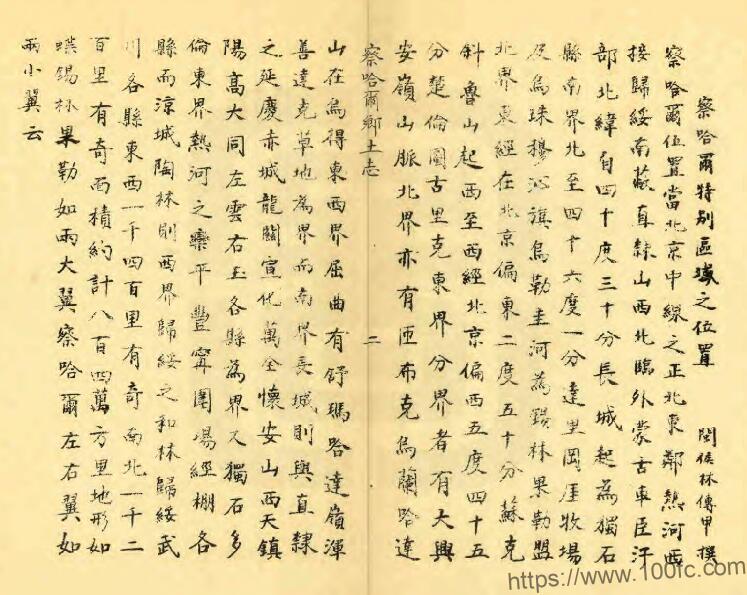 察哈爾特別區域之位置　閩侯林傳甲撰
察哈爾位置當北京中線之正北東鄰熱河西
接歸綏南蔽直隸山西北臨外蒙古車臣汗
部北緯自四十度三十分長城起為獨石
縣南界北至四十六度一分達里岡厓牧場
及烏珠穆沁旗烏勒圭河為錫林果勒盟
北界東經在北京偏東二度五十分蘇克
斜魯山起西至西經北京偏西五度四十五
分楚倫圖古里克東界分界者有大興
安嶺山脈北界亦有匝布克烏蘭哈達
察哈爾鄉土志
二
山在烏得東西界屈曲有舒瑪哈達嶺渾
善達克草地為界南界長城則與直隸
之延慶赤城龍關宣化萬全懷安山西天鎮
陽高大同左雲右玉各縣為界又獨石多
倫東界熱河之灤平豐寧圍場經棚各
縣而涼城陶林則西界歸綏之和林歸綏武
川各縣東西一千四百里有奇南北一千二
百里有奇面積約計八百四萬方里地形如
蝶錫林果勒如兩大翼察哈爾左右翼如
兩小翼云
https://www.100fc.com